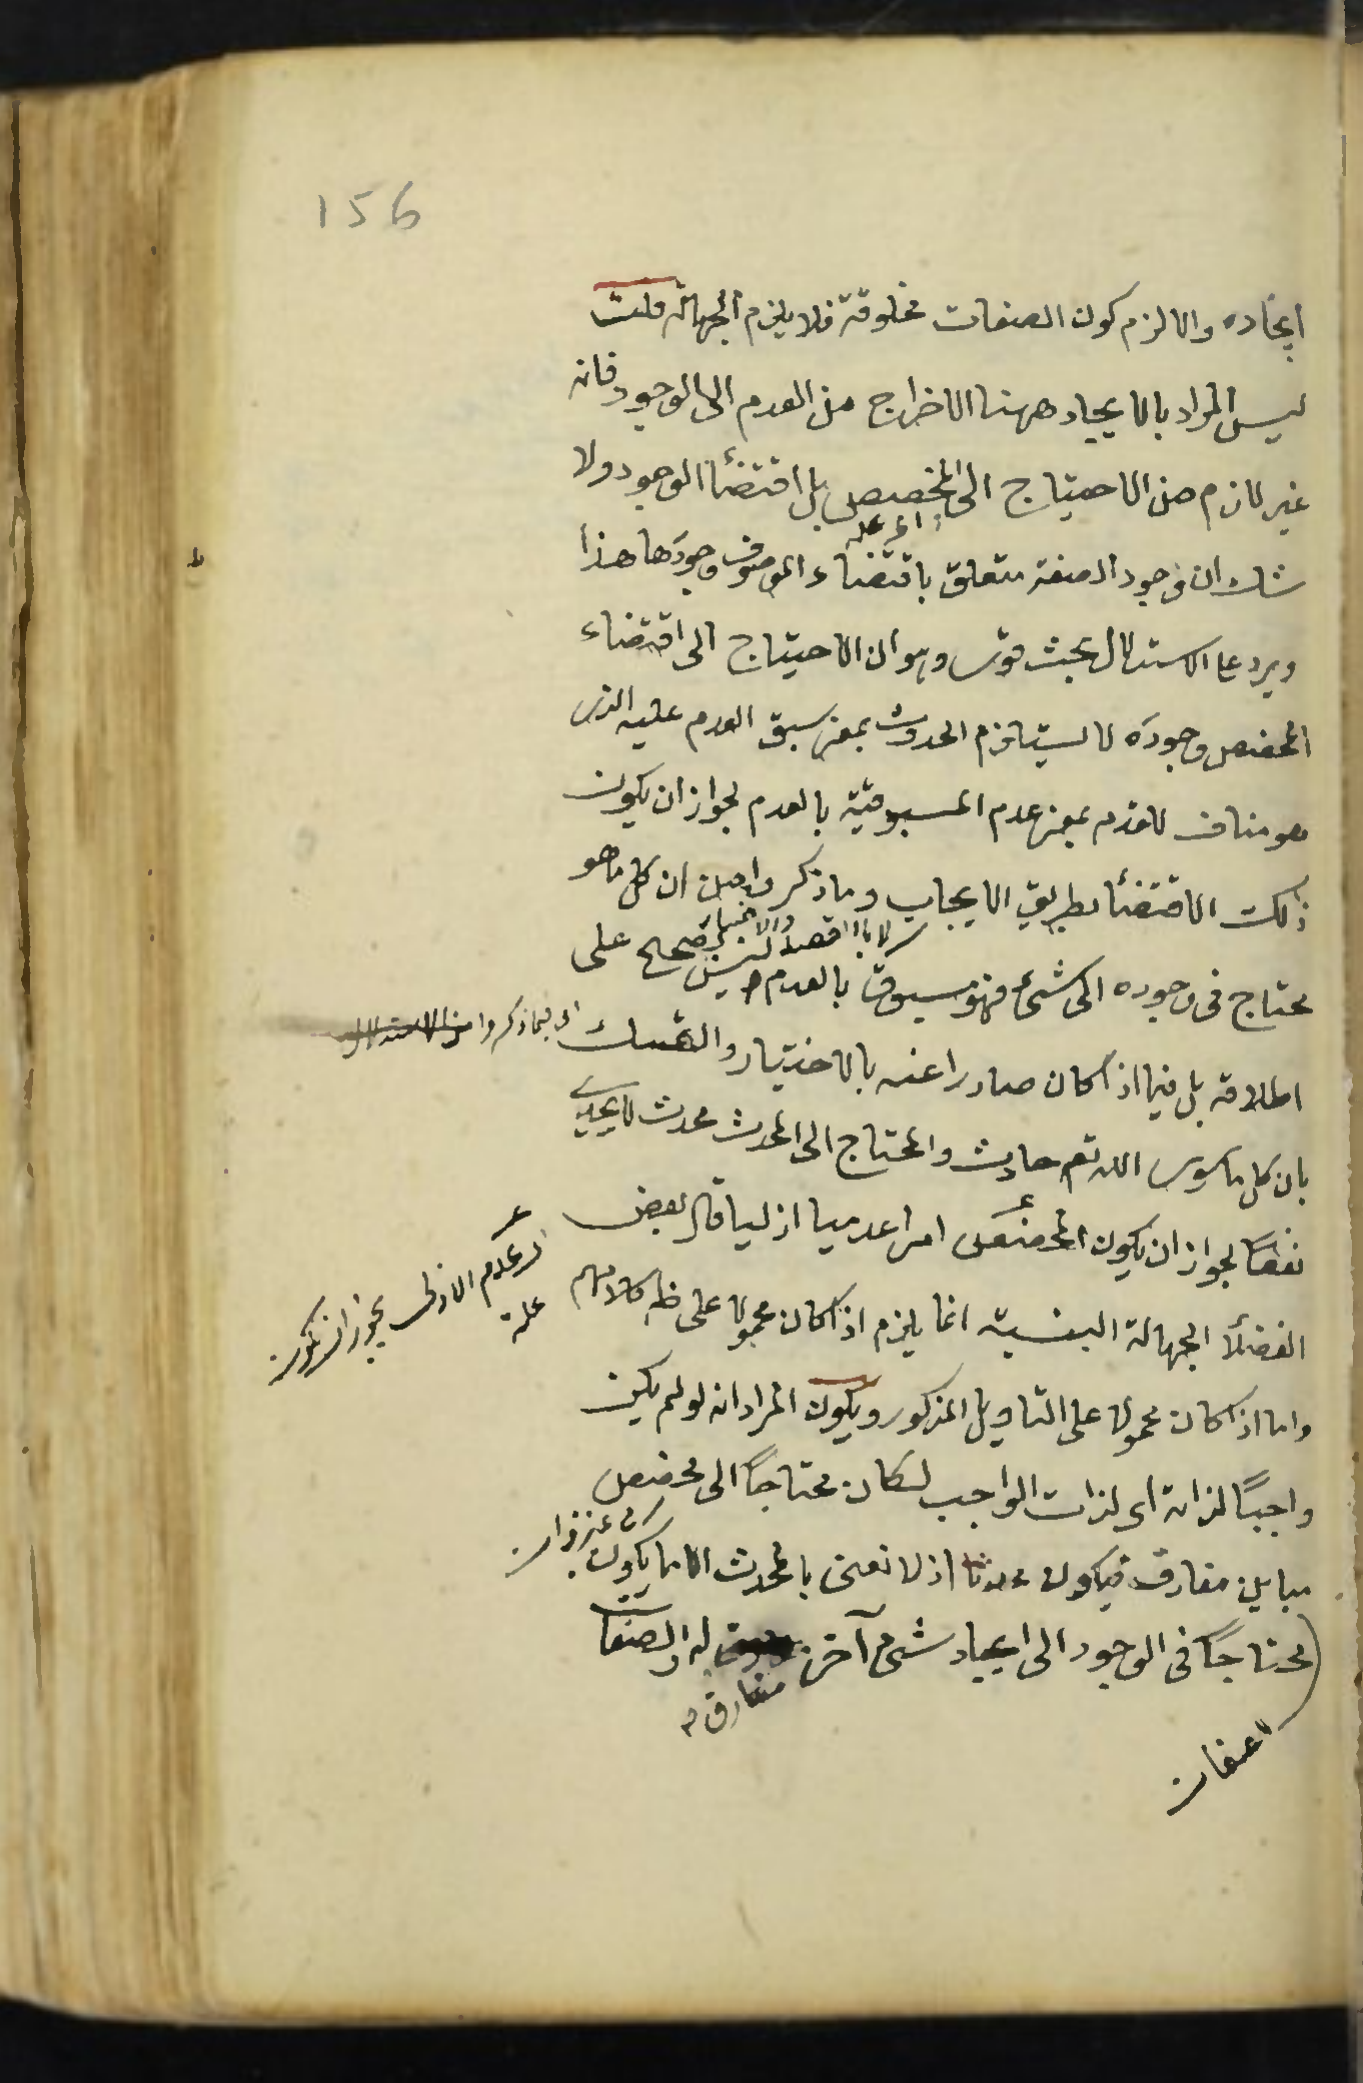 156
ايجاده والا لزم كون الصفات مخلوقة فلا يلزم الجهالة قلت
ليس المراد بالايجاد ههنا الاخراج من العدم الى الوجود فانه
غير لازم من الاحتياج الى المخصص بل اقتضاء الوجود ولا
اى علة
شك ان وجود الصفة متعلق باقتضاء الموصوف وجودها هذا
ويرد على الاستدلال بحث قوى وهو ان الاحتياج الى اقتضاء
المخصص وجوده لا يستلزم الحدوث بمعنى سبق العدم عليه الذى
هو مناف للقدم بمعنى عدم المسبوقية بالعدم لجواز ان يكون
ذلك الاقتضاء بطريق الايجاب وما ذكروا من ان كل ما هو
لا بالقصد والاختيار
محتاج فى وجوده الى شئ فهو مسبوق بالعدم ليس بصحيح على
اطلاقه بل فيما اذا كان صادرا عنه بالاختيار والتمسك
اى فيما ذكروا من الاستدلال
بان كل ما سوى الله تعم حادث والمحتاج الى المحدث محدث لا يجدى
نفعا لجواز ان يكون المخصص امرا عدميا ازليا قال بعض
اى عدم الازلى يجوز ان يكون
علة
الفضلا الجهالة البينة انما يلزم اذا كان محمولا على ظ كلامهم
واما اذا كان محمولا على التاويل المذكور ويكون المراد انه لو لم يكن
واجبًا لذاته اى لذات الواجب لكان محتاجًا الى مخصص
مباين مفارق فيكون محدثا اذ لا نعنى بالمحدث الا ما يكون
محتاجًا فى الوجود الى ايجاد شئ آخر له والصفات
مفارق